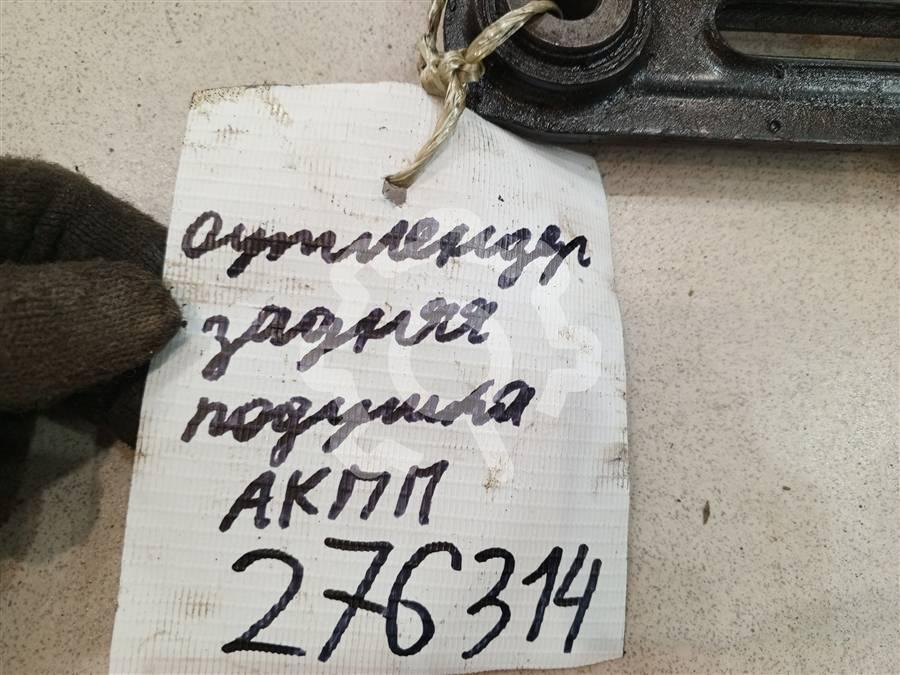 Аутлендер
задняя
подушка
АКПП
276314